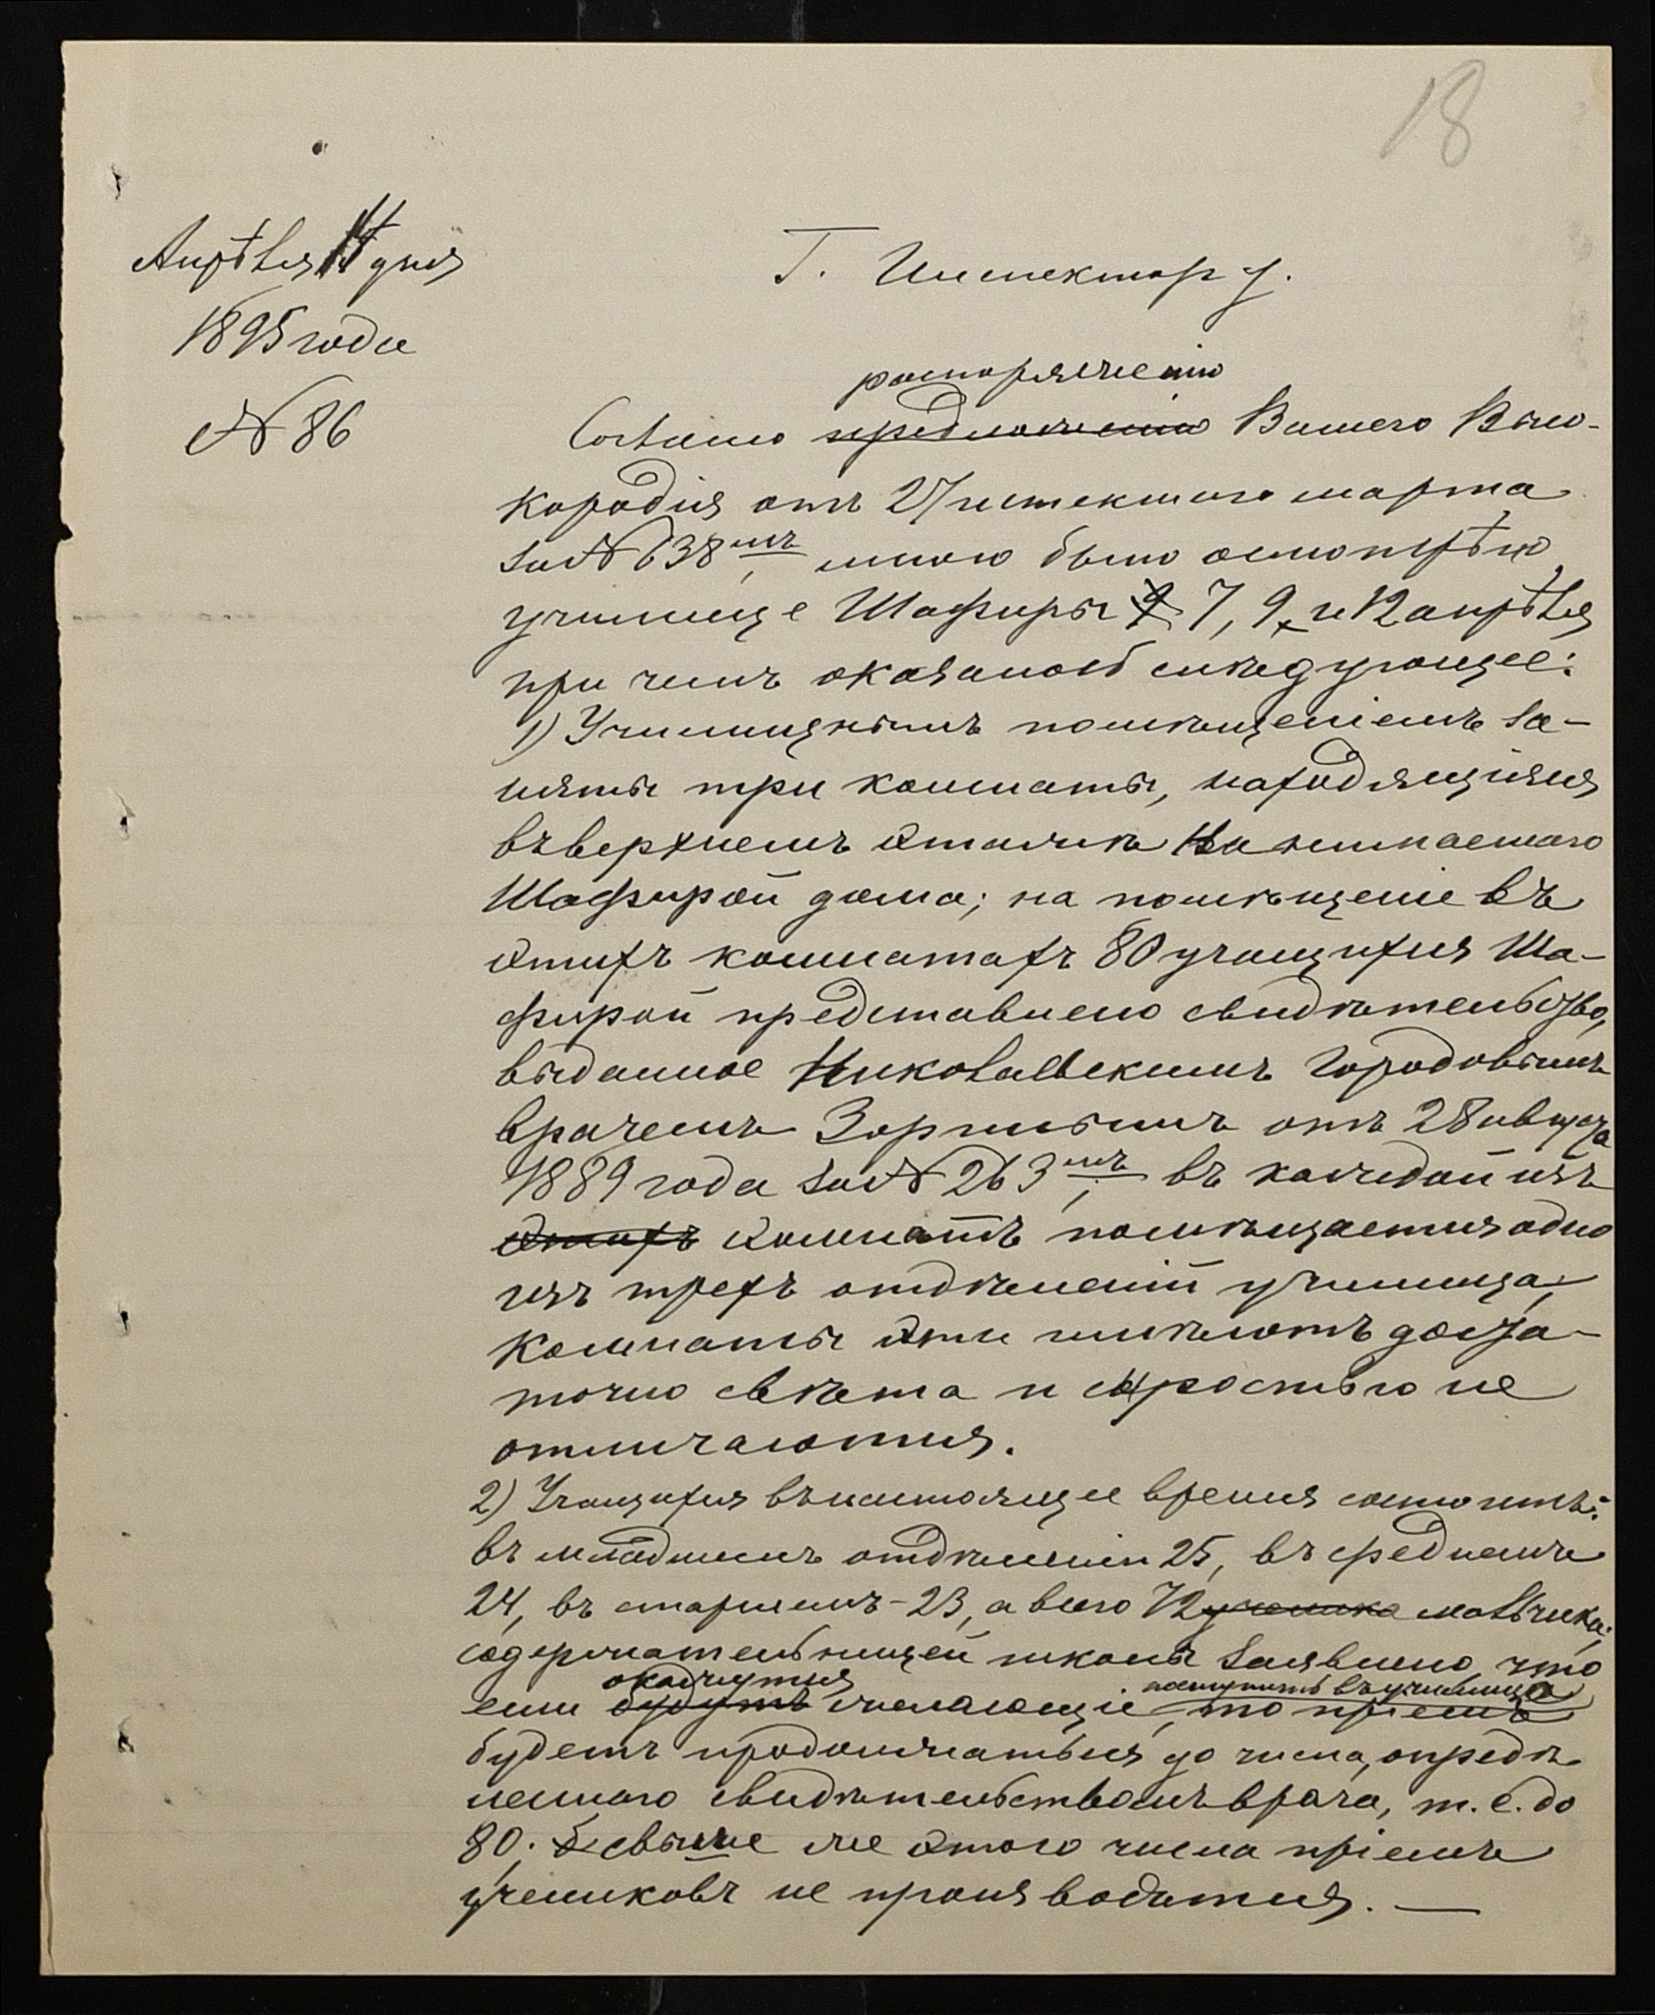 18
Апрѣля 14 дня
1895 года
№ 86
Г. Инспектору.
распоряженію
Согласно предложенію Вашего Высо-
кородія отъ 27 истекшаго марта
за № 638мъ, мною было осмотрѣно
училище Шафиры 7, 9, и 12 апрѣля
при чемъ оказалось слѣдующее:
1) Училищнымъ помѣщеніемъ за-
няты три комнаты, находящіяся
въ верхнемъ этажѣ нанимаемаго
Шафирой дома; на помѣщеніе въ
этихъ комнатахъ 80 учащихся Ша-
фирой представлено свидѣтельство,
выданное Николаевскимъ Городовымъ
врачемъ отъ 28 августа
1889 года за № 263мъ; въ каждой изъ
этихъ комнатъ помѣщается одно
изъ трехъ отдѣленій училища;
комнаты эти имѣютъ доста-
точно свѣта и сыростью не
отличаются.
2) Учащихся въ настоящее время состоитъ:
въ младшемъ отдѣленіи 25, въ среднемъ
24, въ старшемъ - 23, а всего 72 ученика мальчика;
содержательницей школы заявлено, что
окажутся поступить въ училище
если будутъ желающіе, то пріемъ
будетъ продолжаться до числа, опредѣ
леннаго свидѣтельствомъ врача, т. е. до
80; свыше же этого числа пріемъ
учениковъ не производится. —